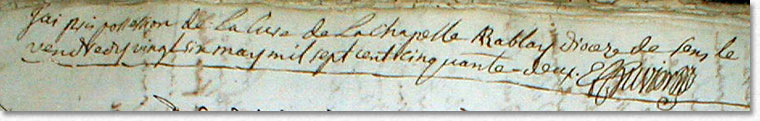 J'ai pris possession de la Cure de La Chapelle Rablay diocèze de Sens le
vendredy vingt six may mil sept cent cinquante-deux.